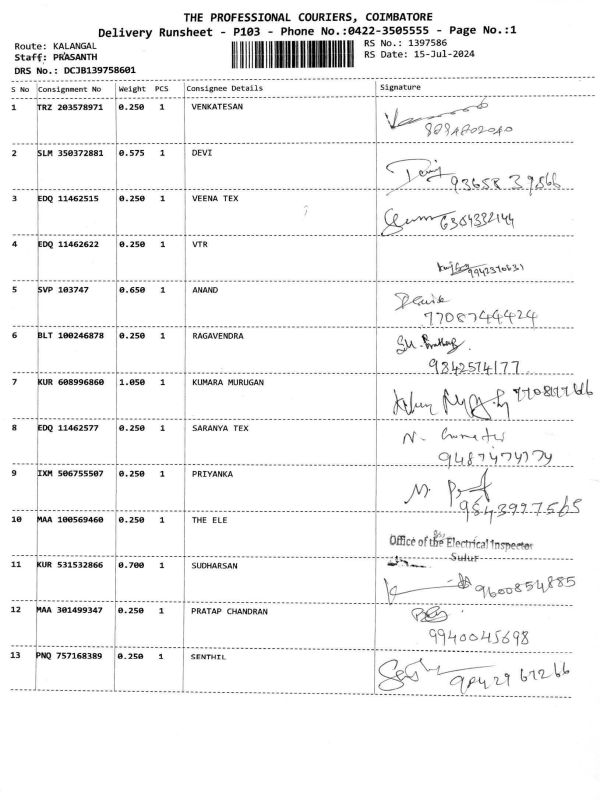 THE PROFESSIONAL COURIERS, COIMBATORE
Delivery Runsheet - P103 - Phone No.:0422-3505555 - Page No.:1
Route: KALANGAL
Staff: PRASANTH
DRS No.: DCJB139758601
RS No.: 1397586
RS Date: 15-Jul-2024
S No Consignment No Weight PCS Consignee Details Signature
1 TRZ 203578971 0.250 1 VENKATESAN
2 SLM 350372881 0.575 1 DEVI
Devi
3 EDQ 11462515 0.250 1 VEENA TEX
6304332144
4 EDQ 11462622 0.250 1 VTR
5 SVP 103747 0.650 1 ANAND
7708744424
6 BLT 100246878 0.250 1 RAGAVENDRA
9842574177
7 KUR 608996860 1.050 1 KUMARA MURUGAN
8 EDQ 11462577 0.250 1 SARANYA TEX
9487474174
9 IXM 506755507 0.250 1 PRIYANKA
9543997565
10 MAA 100569460 0.250 1 THE ELE
Office of the Electrical Inspector
Sulur
11 KUR 531532866 0.700 1 SUDHARSAN
9600854885
12 MAA 301499347 0.250 1 PRATAP CHANDRAN
9940045698
13 PNQ 757168389 0.250 1 SENTHIL
9842967266